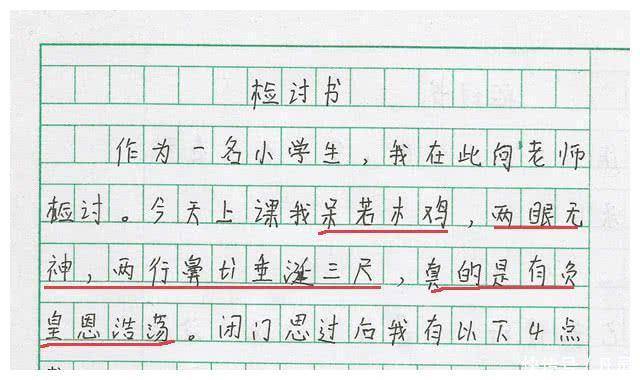 检讨书
作为一名小学生，我在此向老师
检讨。今天上课我呆若木鸡，两眼无
神，两行鼻ti垂涎三尺，真的是有负
皇恩浩荡。闭门思过后我有以下4点